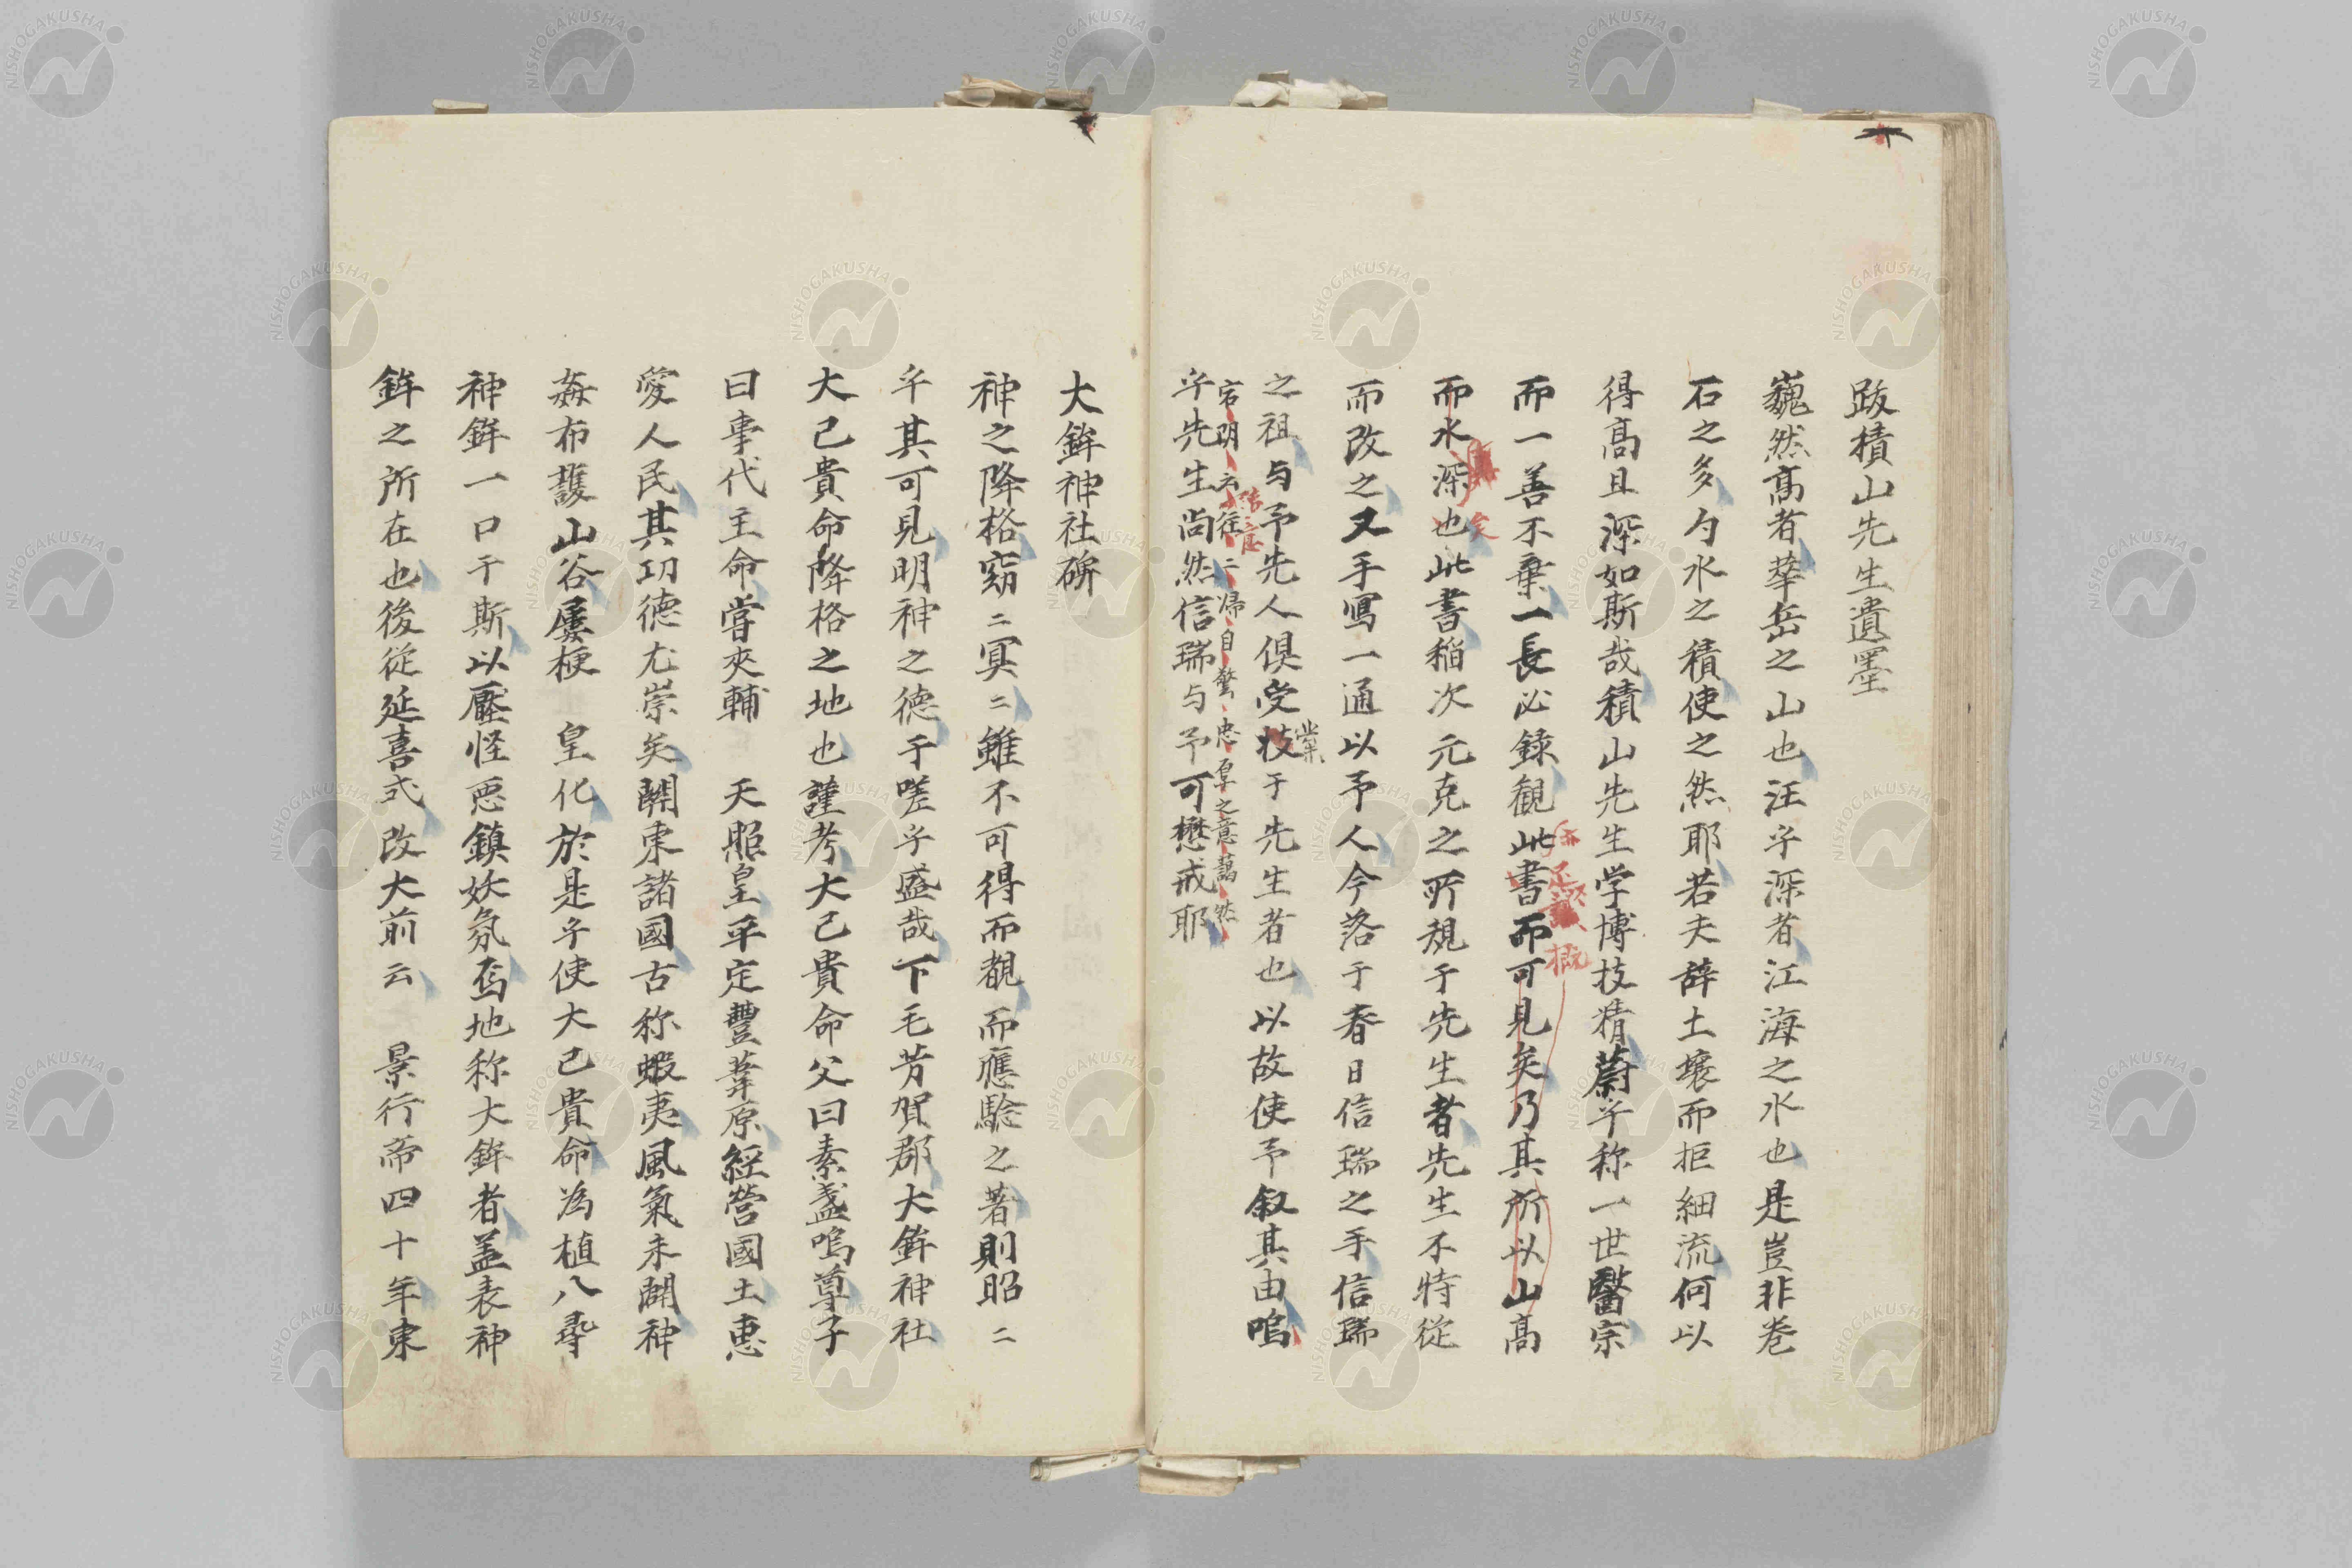 跋積山先生遺墨
巍然高者華岳之山也汪乎深者江海之水也是豈非巻
石之多勺水之積使之然耶若夫辞土壌而拒細流何以
得高且深如斯哉積山先生学博技精蔚乎称一世醫宗
而一善不棄一長必録観此書而可見矣乃其所以山高
亦足
概
而水深也此書稲次元克之所規于先生者先生不特従
真
矣
而改之又手寫一通以予人今落于春日信瑞之手信瑞
之祖与予先人倶受技于先生者也以故使予叙其由嗚
業
宕明云往二帰自警忠厚之意藹然
乎先生尚然信瑞与予可懋戒耶
大鉾神社碑
神之降格窈二冥二雖不可得而覩而應驗之著則昭二
乎其可見明神之德于嗟乎盛哉下毛芳賀郡大鉾神社
大己貴命降格之地也謹考大己貴命父曰素盞嗚尊子
曰事代主命嘗夾輔 天照皇平定豐葦原經營國土惠
愛人民其功德尤崇矣關東諸國古称蝦夷風氣未開神
姦布護山谷屢梗 皇化於是乎使大己貴命為植八尋
神鉾一口于斯以壓怪惡鎮妖氛焉地称大鉾者盖表神
鉾之所在也後従延喜式改大前云 景行帝四十年東
NISHOGAKUSHA